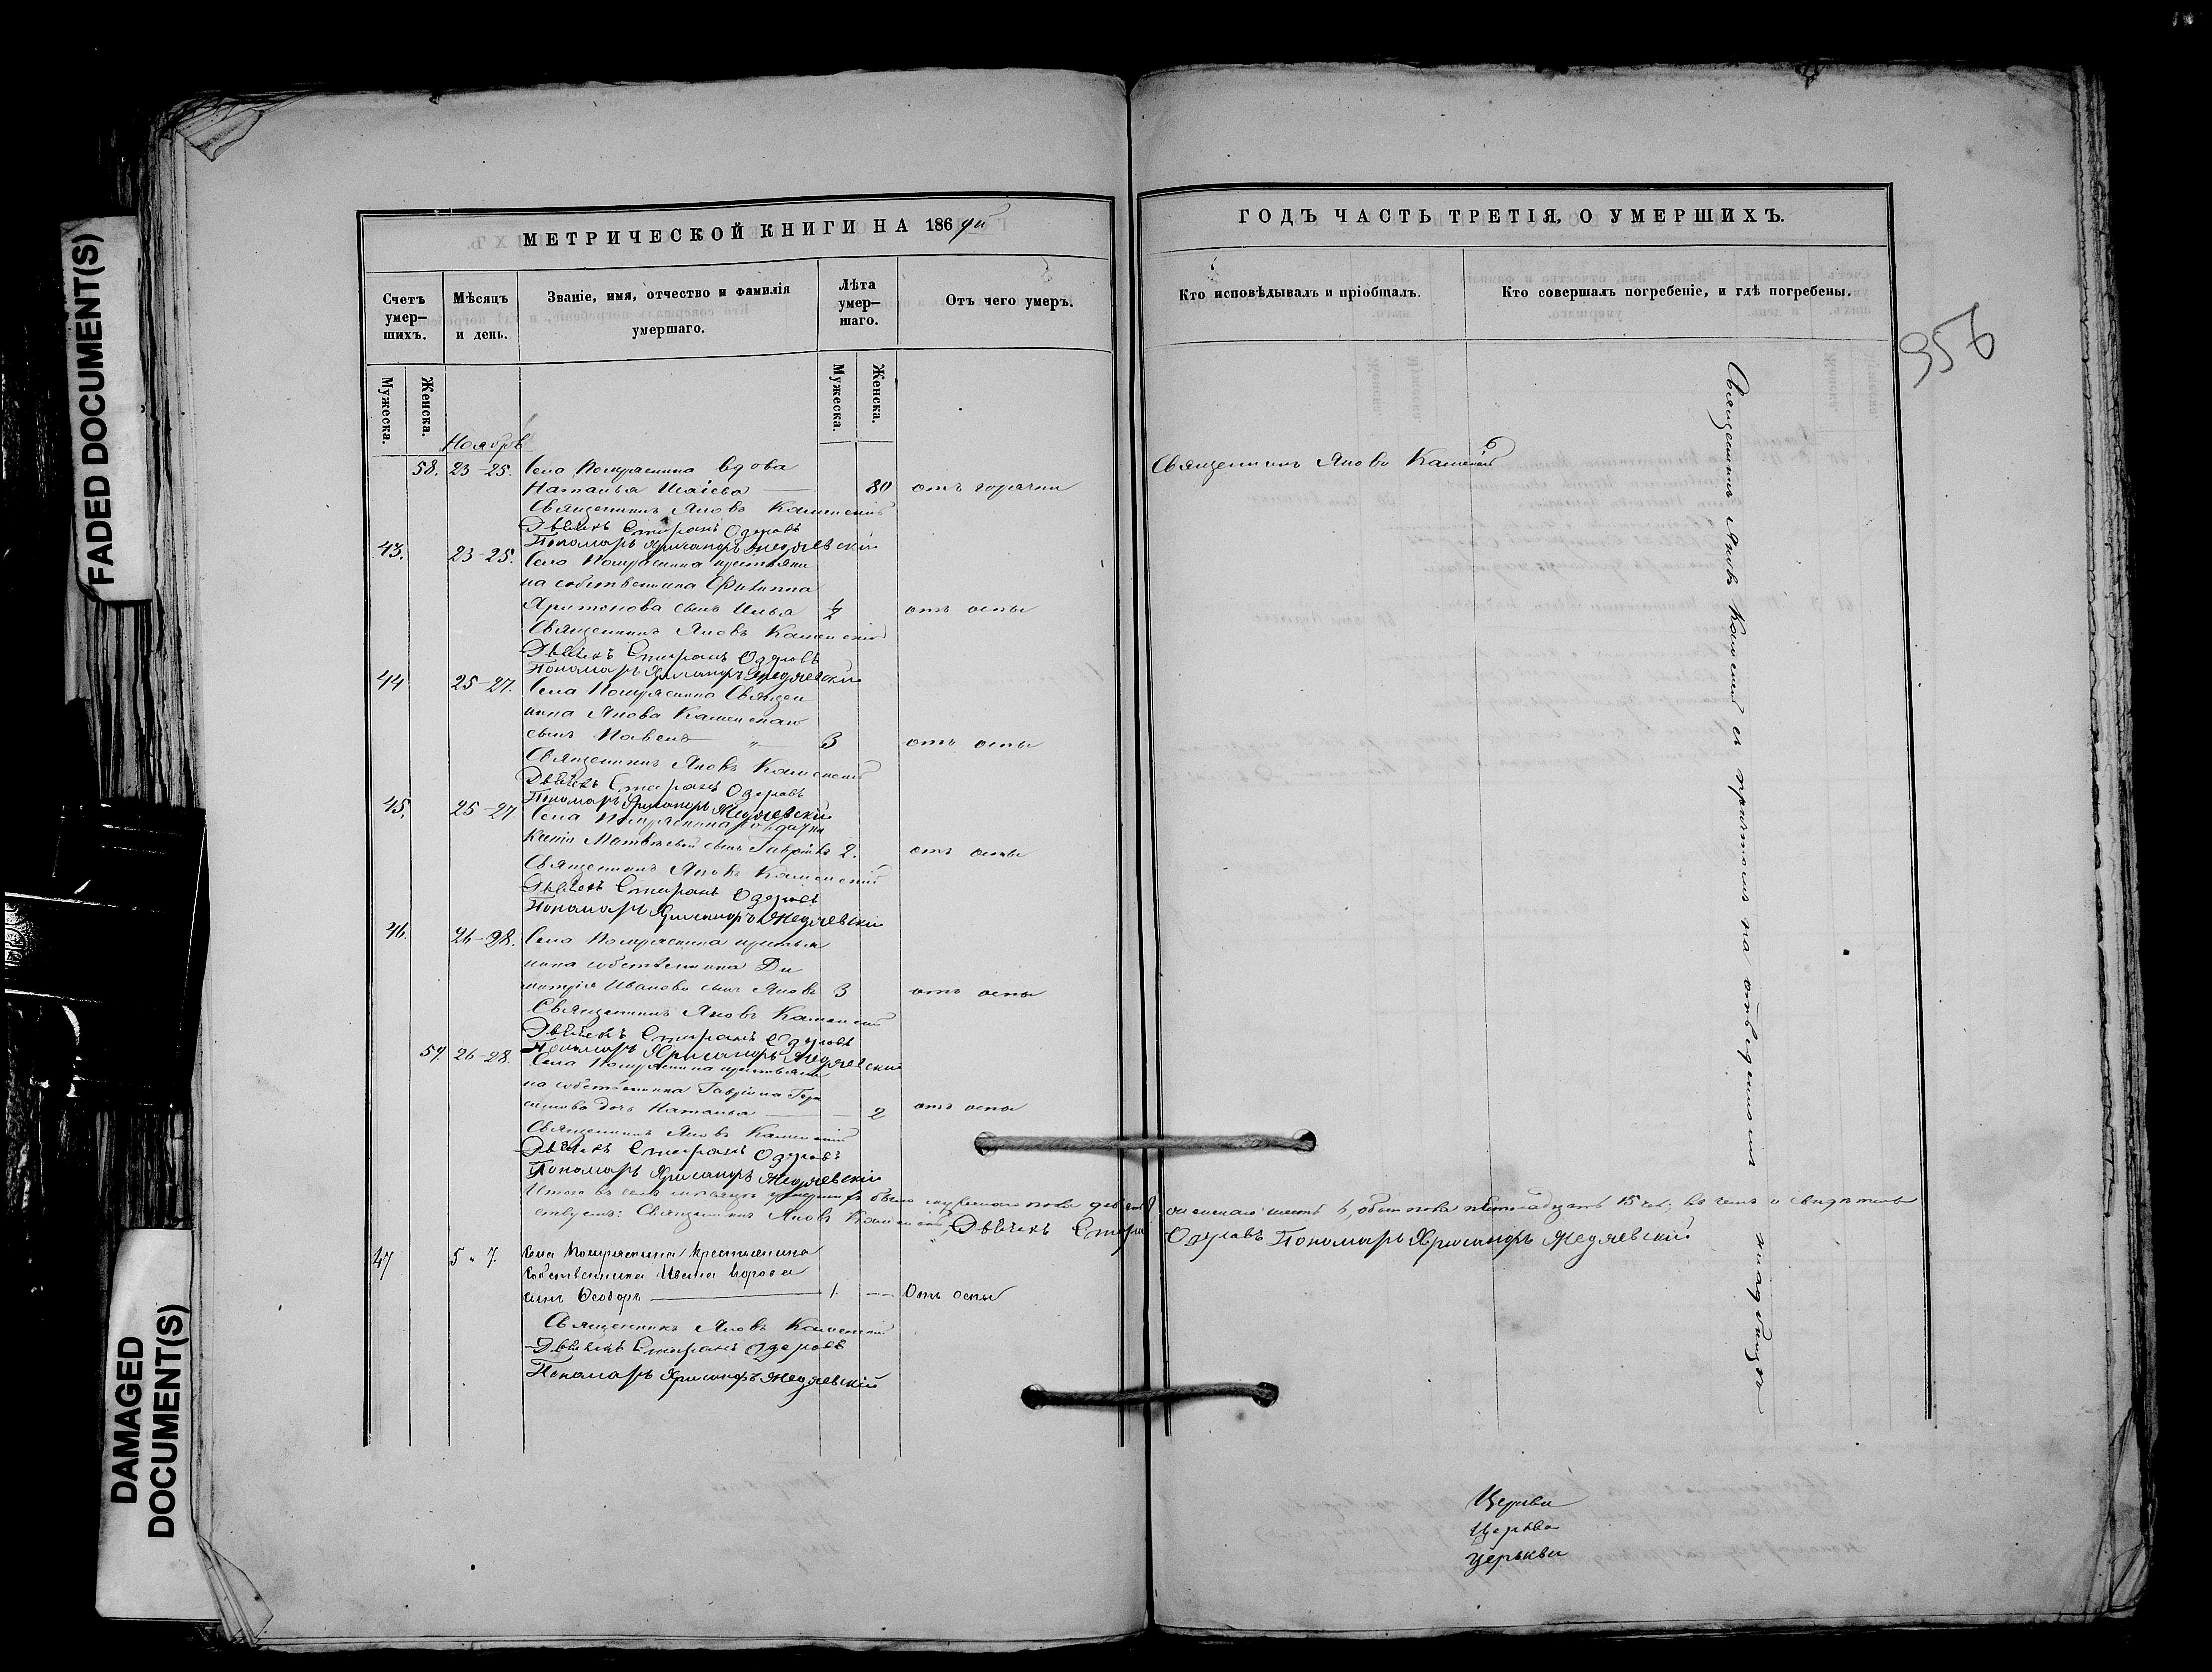 FADED DOCUMENT(S)
DAMAGED
DOCUMENT(S)
МЕТРИЧЕСКОЙ КНИГИ НА 186
Счетъ умер-шихъ.
Мѣсяцъ и день.
Званіе, имя, отчество и фамилія умершаго.
Лѣта умер-шаго.
Отъ чего умеръ.
Мужеска.
Женска.
Мужеска.
Женска.
Ноябрь
58. 23-25. Села вдова
Наталья Исаіева 80 отъ горячки
Священникъ Яковъ Каменскій
Дьячекъ Стефанъ Озеровъ
Пономарь Хрисанфъ
43. 23-25. Села крестьяни
на собственника Филиппа
Харитонова сынъ Илья отъ оспы
Священникъ Яковъ Каменскій
Дьячекъ Стефанъ Озеровъ
Пономарь Хрисанфъ
44 25-27. Села Священ
ника Якова Каменскаго
сынъ Павелъ 3 отъ оспы
Священникъ Яковъ Каменскій
Дьячекъ Стефанъ Озеровъ
Пономарь Хрисанфъ
45. 25-27 Села
Ксеніи Матвѣевой сынъ Гавріилъ 2. отъ оспы
Священникъ Яковъ Каменскій
Дьячекъ Стефанъ Озеровъ
Пономарь Хрисанфъ
46. 26-28. Села крестья
нина собственника Ди
митрія Иванова сынъ Яковъ 3 отъ оспы
Священникъ Яковъ Каменскій
Дьячекъ Стефанъ Озеровъ
Пономарь Хрисанфъ
59. 26-28 Села крестьяни
на собственника Гавріила Гера
симова дочь Наталья 2 отъ оспы
Священникъ Яковъ Каменскій
Дьячекъ Стефанъ Озеровъ
Пономарь Хрисанфъ
Итого въ семъ мѣсяцѣ умершихъ было мужескаго пола девять женскаго шесть 6, обоего пола пятнадцать 15 чел; въ чемъ и свидѣтель
ствуемъ: Священникъ Яковъ Каменскій Дьячекъ Стефанъ Озеровъ Пономарь Хрисанфъ
47 5 " 7. Села крестьянина
собственника Ивана
сынъ Ѳеодоръ 1. Отъ оспы
Священникъ Яковъ Каменскій
Дьячекъ Стефанъ Озеровъ
Пономарь Хрисанфъ
ГОДЪ ЧАСТЬ ТРЕТІЯ, О УМЕРШИХЪ.
Кто исповѣдывалъ и пріобщалъ.
Кто совершалъ погребеніе, и гдѣ погребены.
956
Священникъ Яковъ Каменскій
Священникъ Яковъ Каменскій съ причтомъ на отведенномъ кладбищѣ
Церкви
Церкви
Церькви